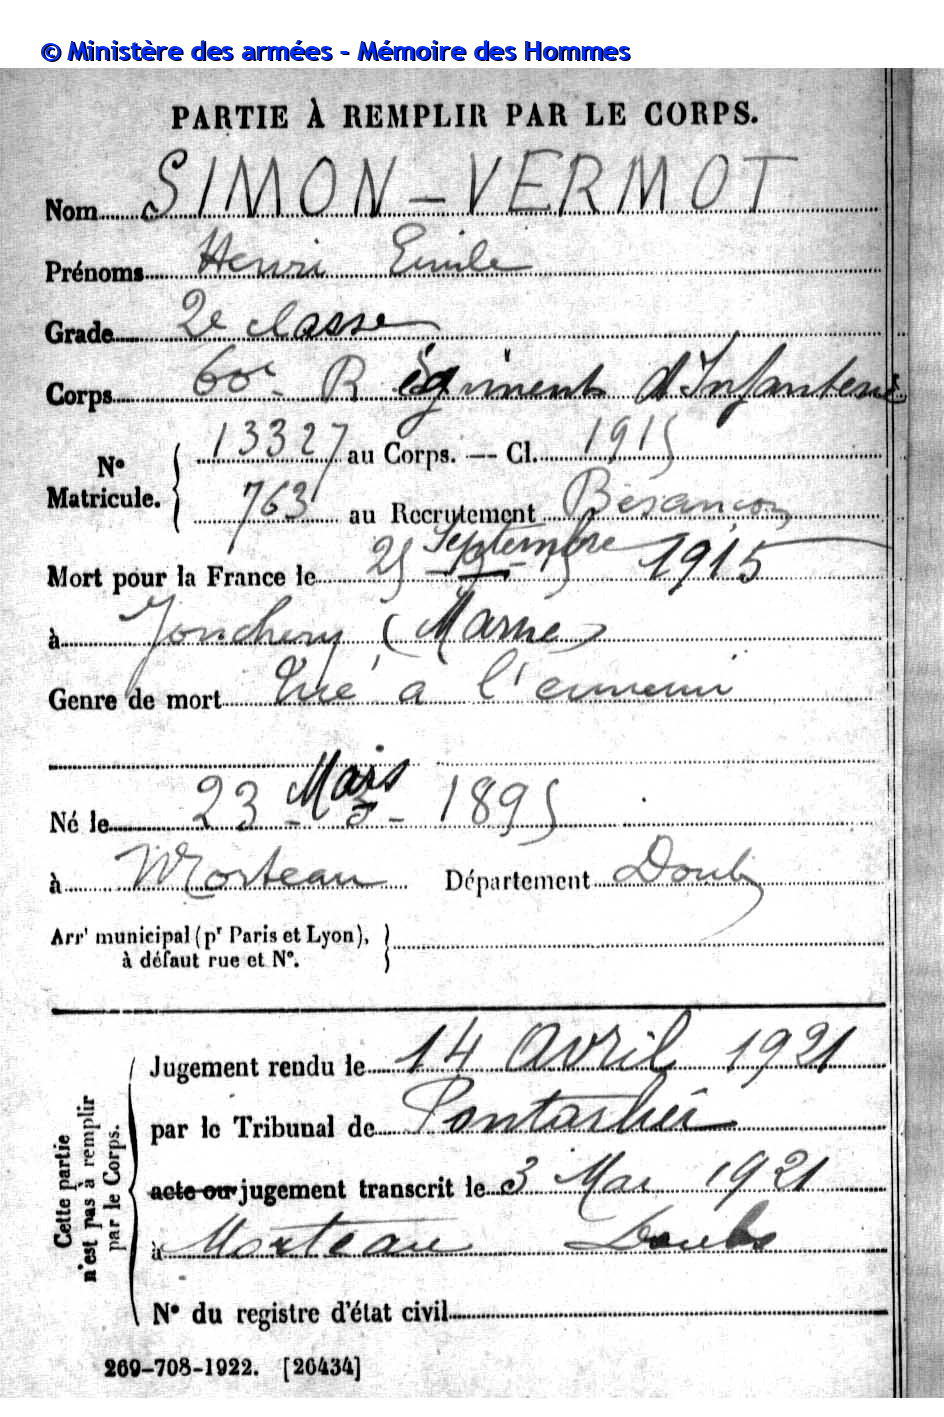 © Ministère des armées - Mémoire des Hommes
PARTIE À REMPLIR PAR LE CORPS.
Nom SIMON-VERMOT
Prénoms Henri Emile
Grade 2e classe
Corps 60e Régiment d'Infanterie
N° Matricule. { 13327 au Corps. — Cl. 1915
763 au Recrutement Besançon
Mort pour la France le 25 Septembre 1915
à Jonchery (Marne)
Genre de mort Tué à l'ennemi
Né le 23 Mars 1895
à Morteau Département Doubs
Arr' municipal (pr Paris et Lyon), }
à défaut rue et N°.
Cette partie n'est pas à remplir par le Corps.
Jugement rendu le 14 Avril 1921
par le Tribunal de Pontarlier
acte ou jugement transcrit le 3 Mai 1921
à Morteau Doubs
N° du registre d'état civil
269-708-1922. [26434]